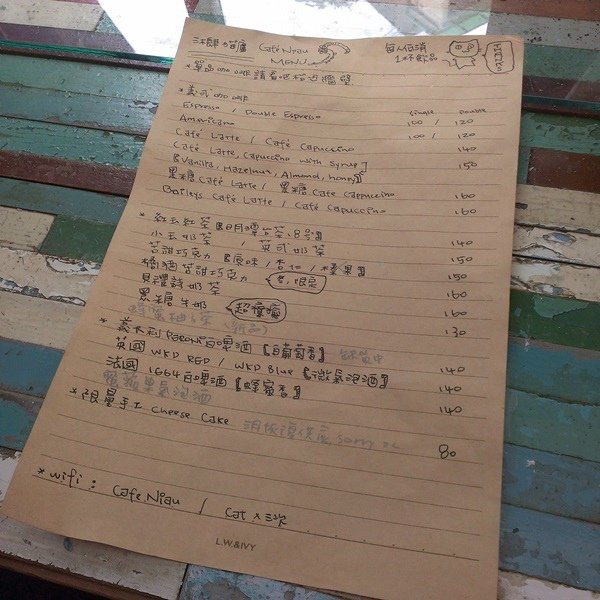 Café Niau MENU
每人低消 1杯飲品
*單品咖啡請看吧檯旁牆壁
*義式咖啡 Single Double
Espresso / Double Espresso 100 / 120
Americano 100 / 120
Café Latte / Café Capuccino 140
Café Latte, Capuccino with Syrup 150
【Vanilla, Hazelnut, Almond, honey】
黑糖 Café Latte / 黑糖 Cafe Cappuccino 160
Baileys Café Latte / Café Capuccino 160
小玉奶茶 / 英式奶茶 140
苦甜巧克力【原味 / 杏仁 / 榛果】 150
橙酒苦甜巧克力 150
貝禮詩奶茶 160
黑糖牛奶 超濃 160
130
*義大利 PERONI 白啤酒【白葡萄香】 140
英國 WKD RED / WKD Blue【微氣泡酒】 140
法國 1664白啤酒【蜂蜜香】 140
蘋果氣泡酒
*限量手工 cheese cake Sorry 80
*wifi : Cafe Niau / Cat x 三次
L.W.&IVY